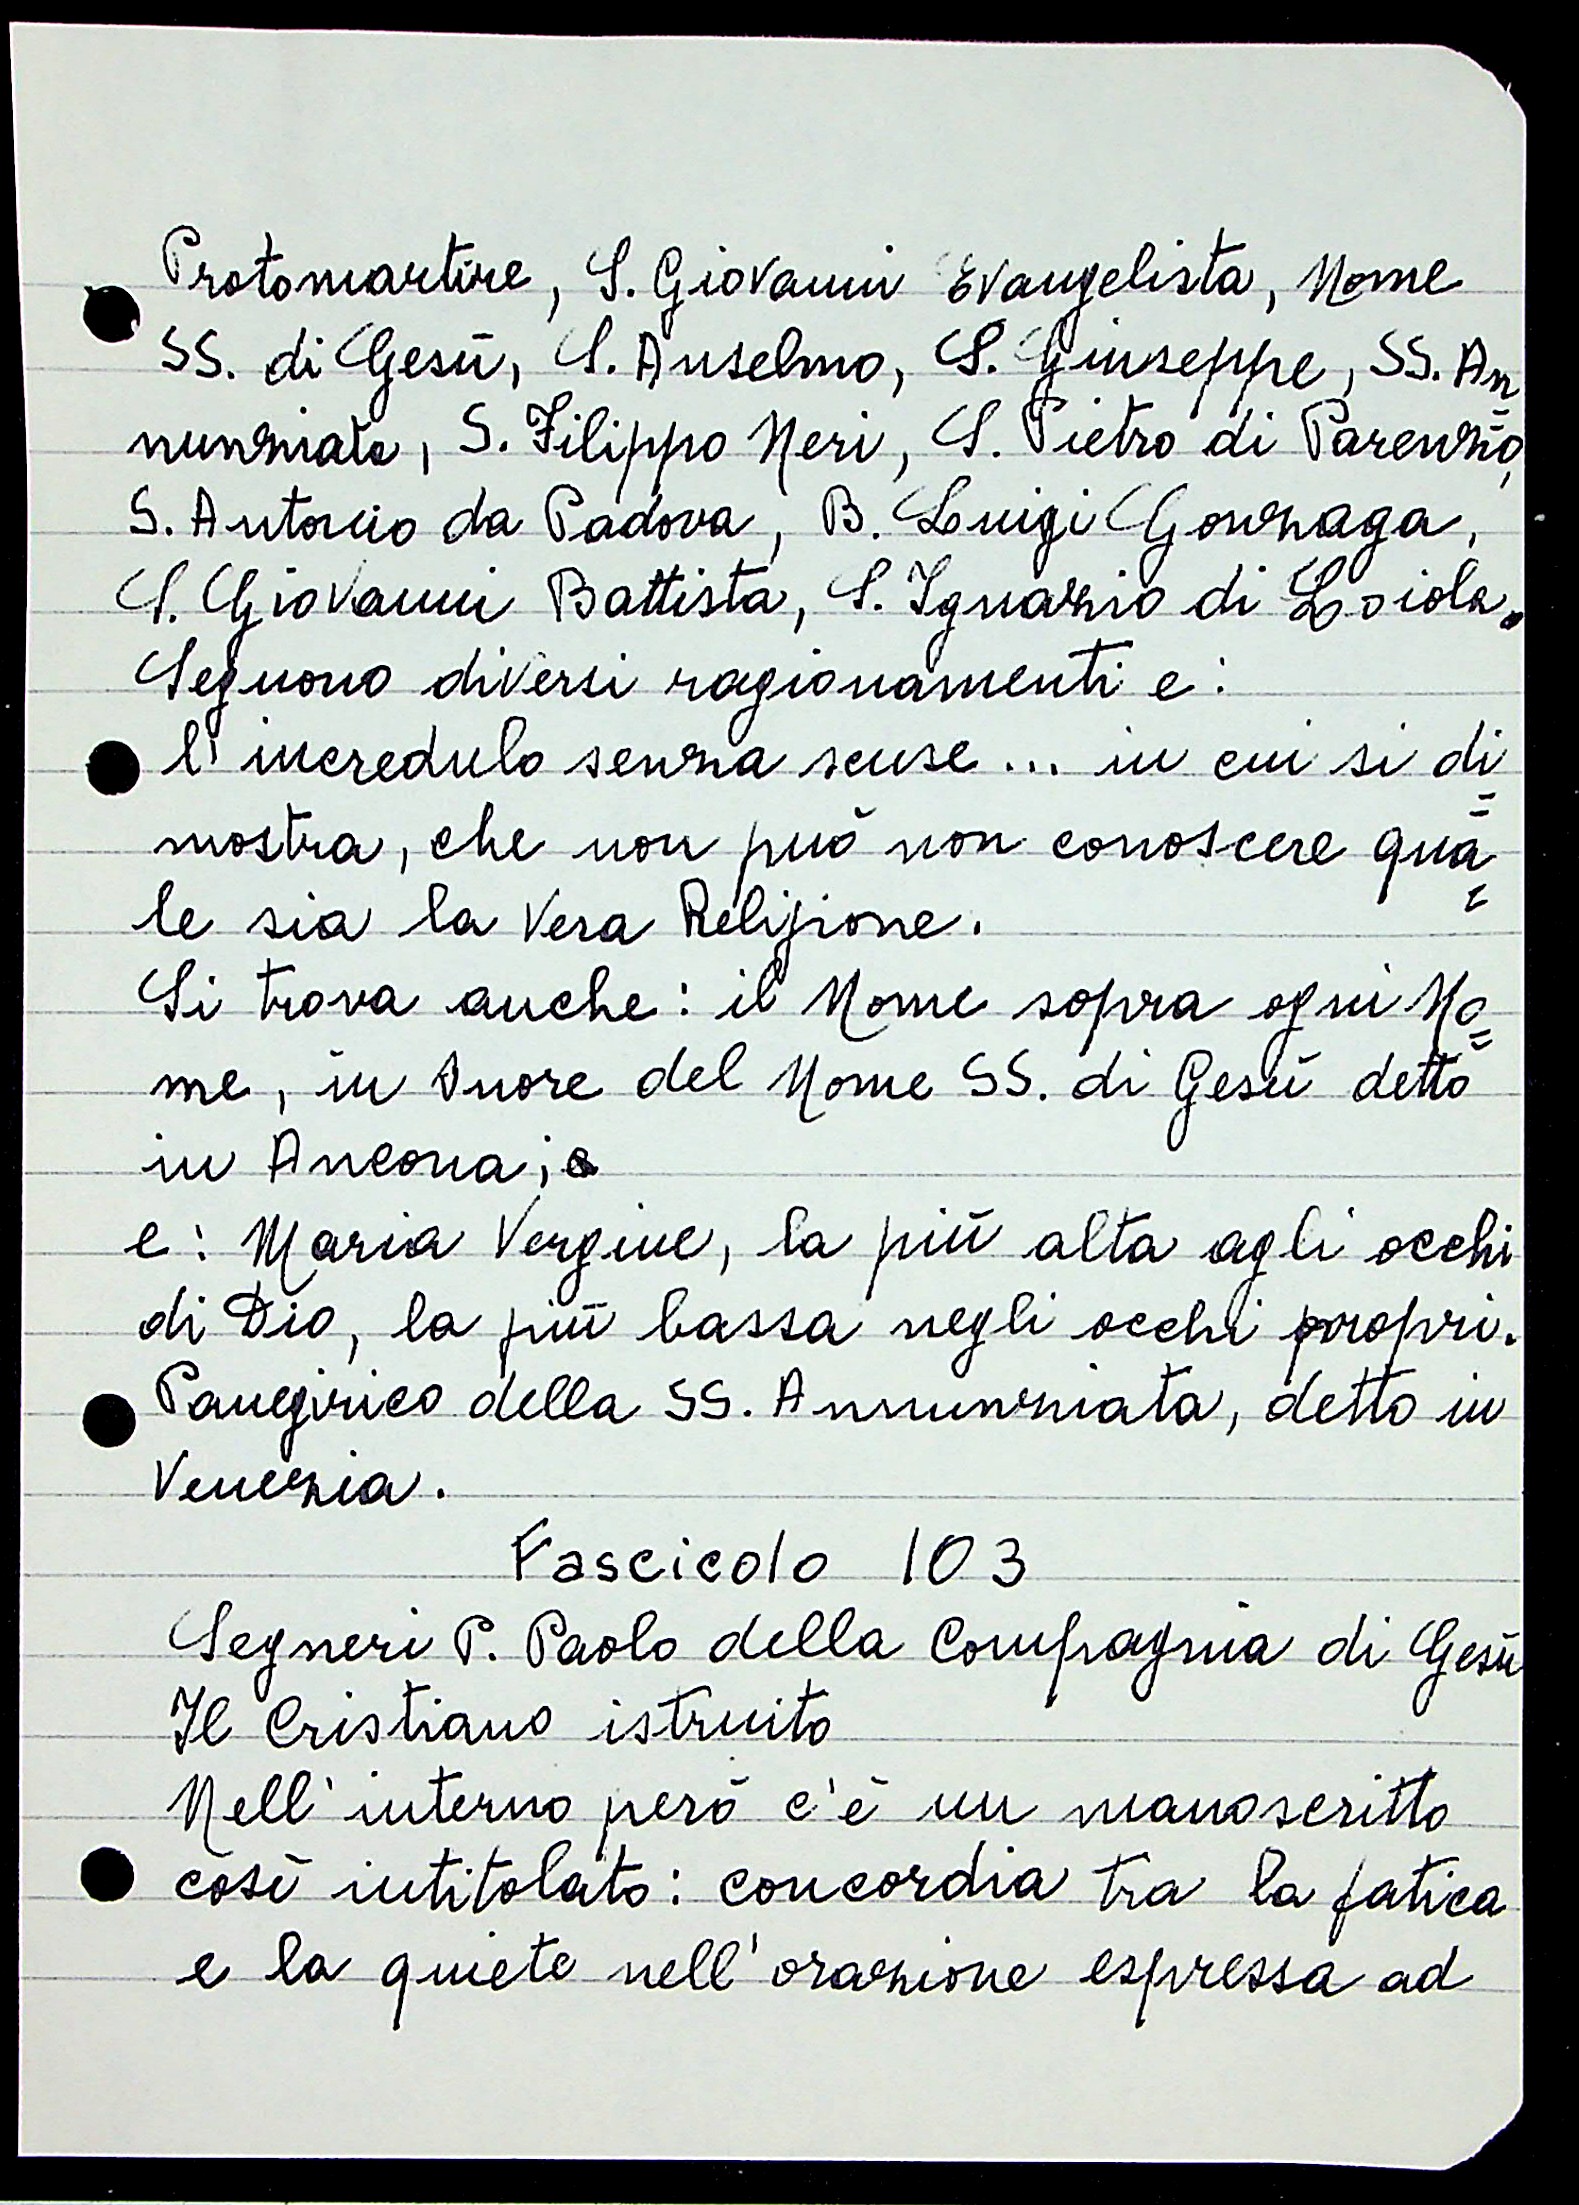 Protomartire, S. Giovanni Evangelista, Nome
SS. di Gesù, S. Anselmo, S. Giuseppe, SS. An
nunziata, S. Filippo Neri, S. Pietro di Parenzo,
S. Antonio da Padova, B. Luigi Gonzaga,
S. Giovanni Battista, S. Ignazio di Loiola.
Seguono diversi ragionamenti e:
l'incredulo senza scuse ... in cui si di=
mostra, che non può non conoscere qua=
le sia la vera Religione.
Si trova anche: il Nome sopra ogni No=
me, in onore del Nome SS. di Gesù detto
in Ancona; e
e: Maria Vergine, la più alta agli occhi
di Dio, la più bassa negli occhi propri.
Panegirico della SS. Annunziata, detto in
Venezia.
Fascicolo 103
Segneri P. Paolo della Compagnia di Gesù
Il Cristiano istruito
Nell'interno però c'è un manoscritto
così intitolato: concordia tra la fatica
e la quiete nell'orazione espressa ad